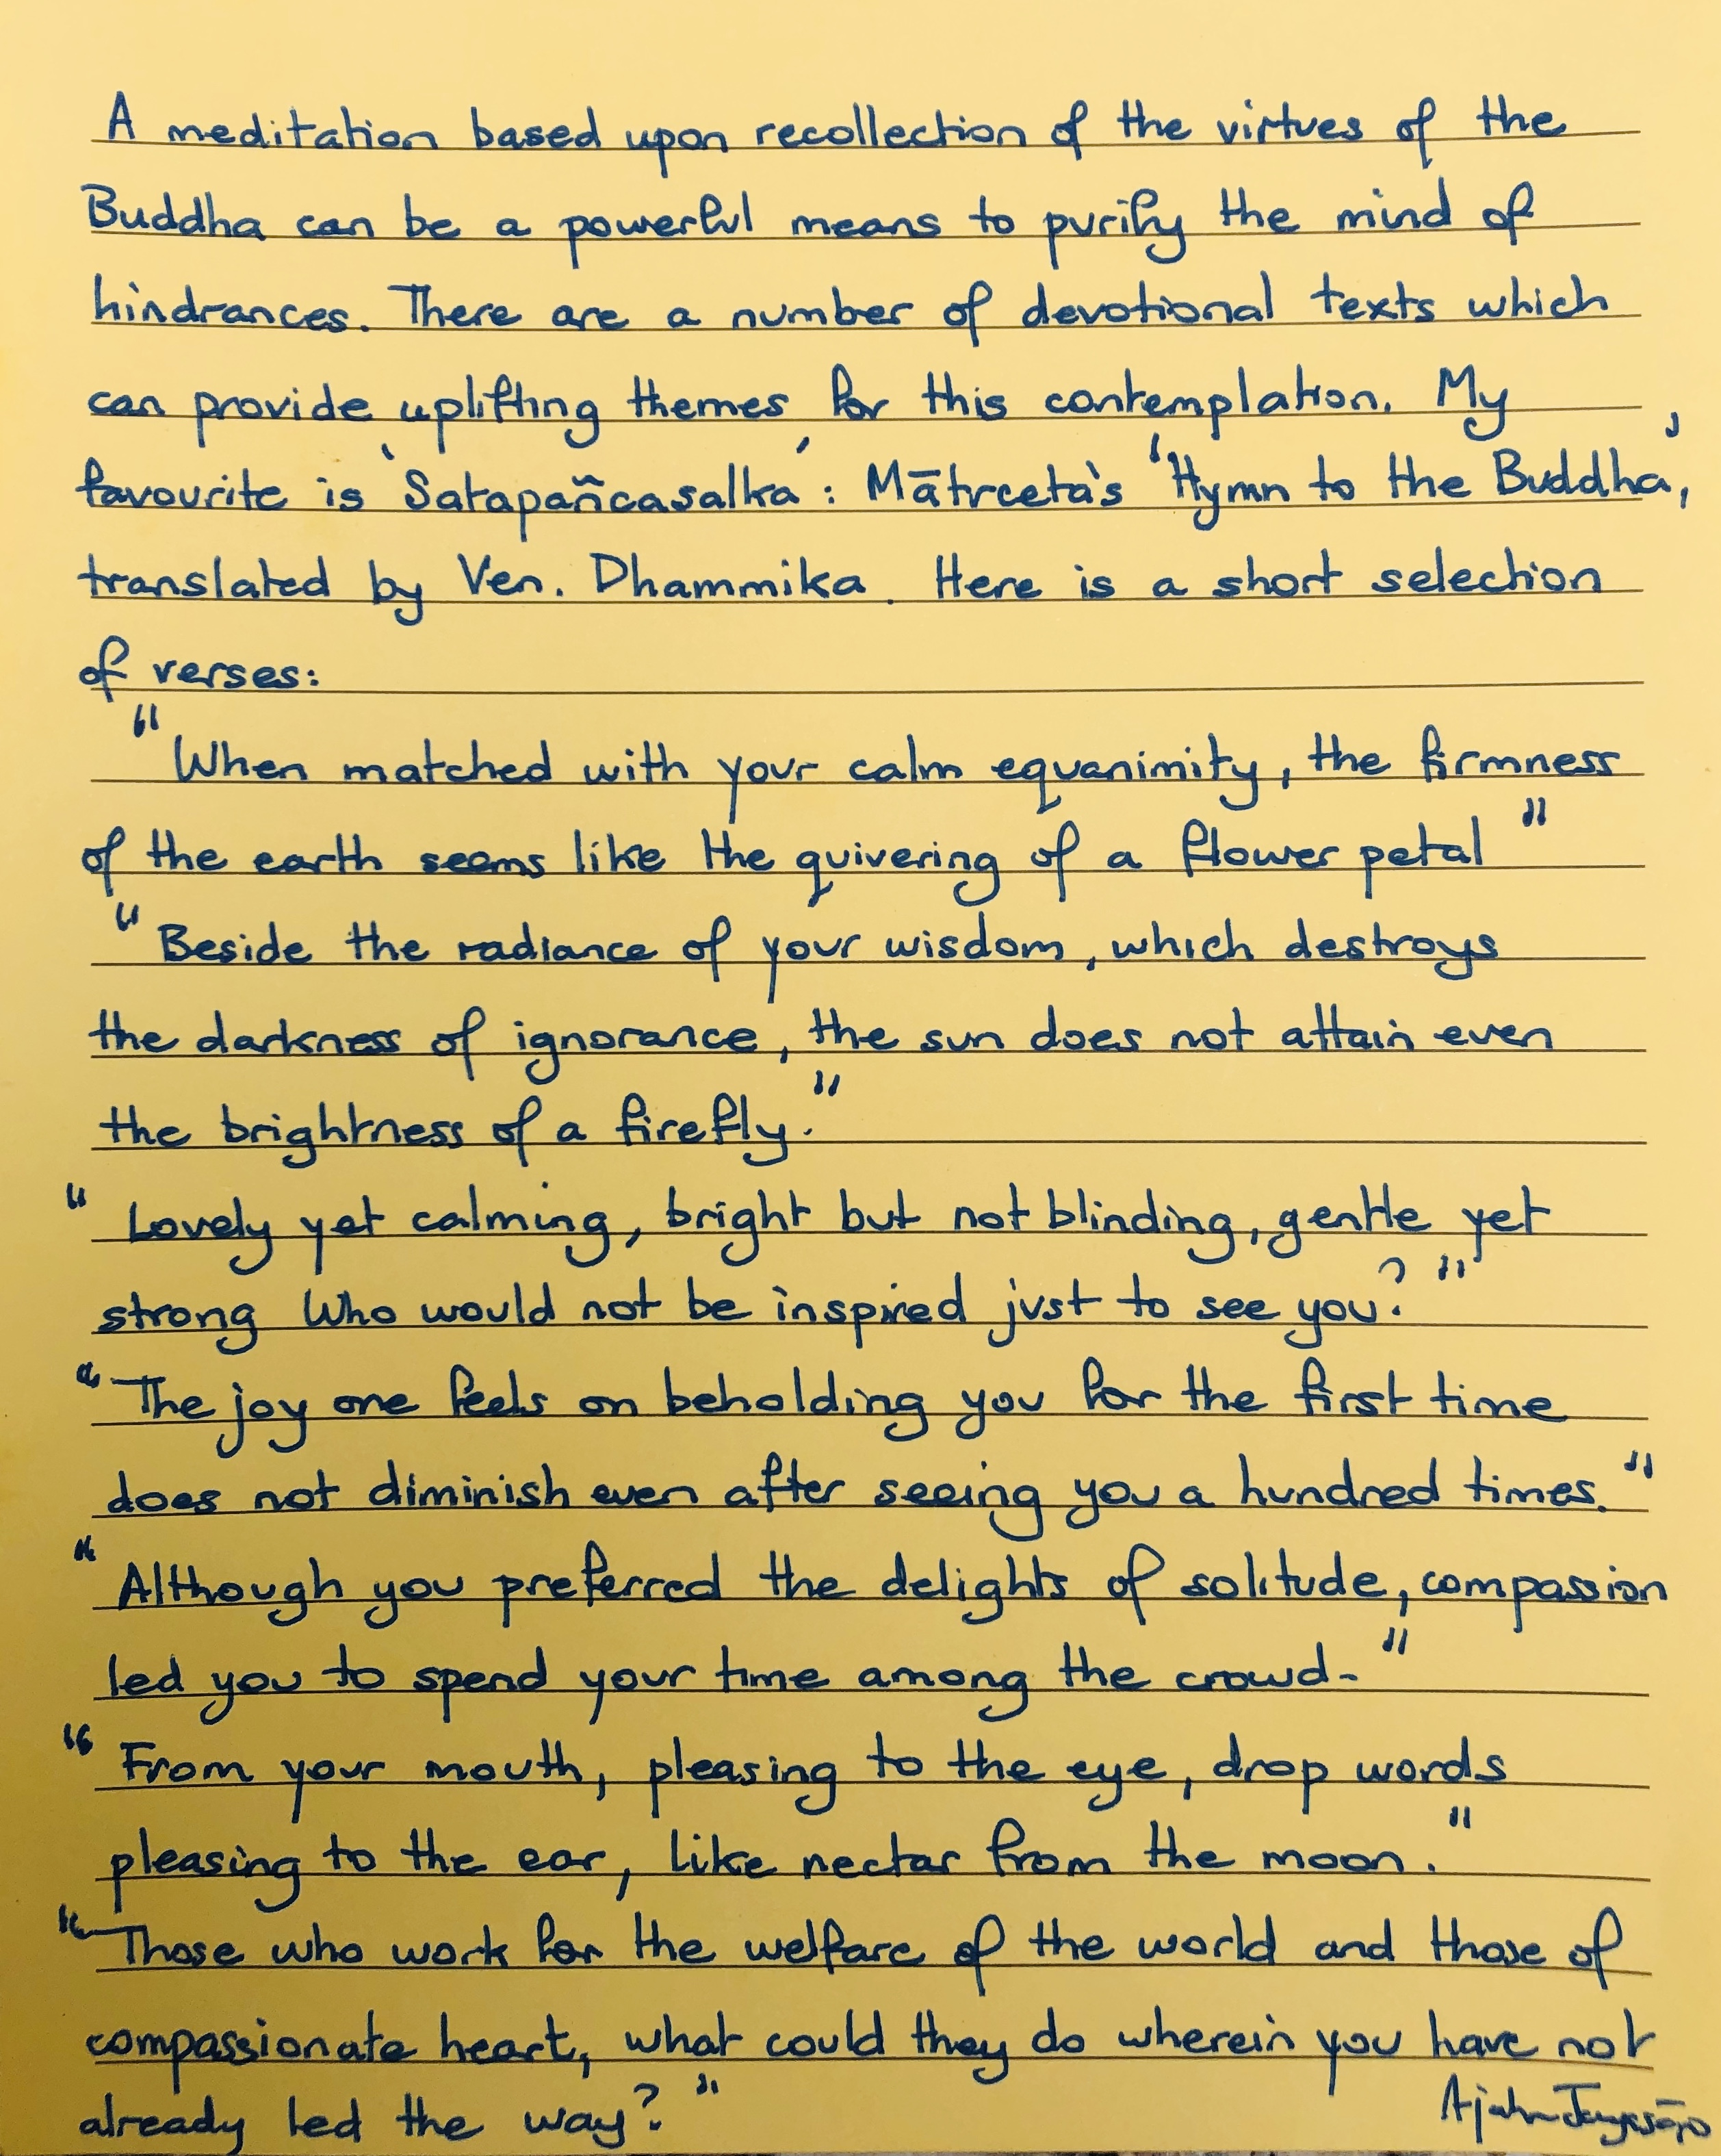 A meditation based upon recollection of the virtues of the
Buddha can be a powerful means to purify the mind of
hindrances. There are a number of devotional texts which
can provide uplifting themes for this contemplation. My
favourite is 'Satapañcasalka': Mātrceta's 'Hymn to the Buddha',
translated by Ven. Dhammika. Here is a short selection
of verses:
"When matched with your calm equanimity, the firmness
of the earth seems like the quivering of a flower petal"
"Beside the radiance of your wisdom, which destroys
the darkness of ignorance, the sun does not attain even
the brightness of a firefly."
"Lovely yet calming, bright but not blinding, gentle yet
strong Who would not be inspired just to see you?"
"The joy one feels on beholding you for the first time
does not diminish even after seeing you a hundred times."
"Although you preferred the delights of solitude, compassion
led you to spend your time among the crowd-"
"From your mouth, pleasing to the eye, drop words
pleasing to the ear, like nectar from the moon."
"Those who work for the welfare of the world and those of
compassionate heart, what could they do wherein you have not
already led the way?"
Ajahn Jayasāro